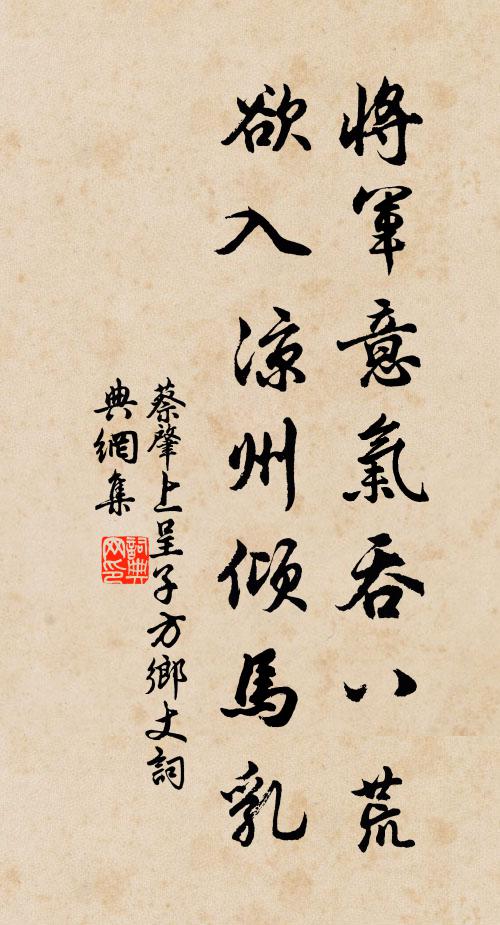 將軍意氣吞八荒
欲入涼州傾馬乳
蔡肇上呈子方鄉丈詞
典網集
詞典
网印